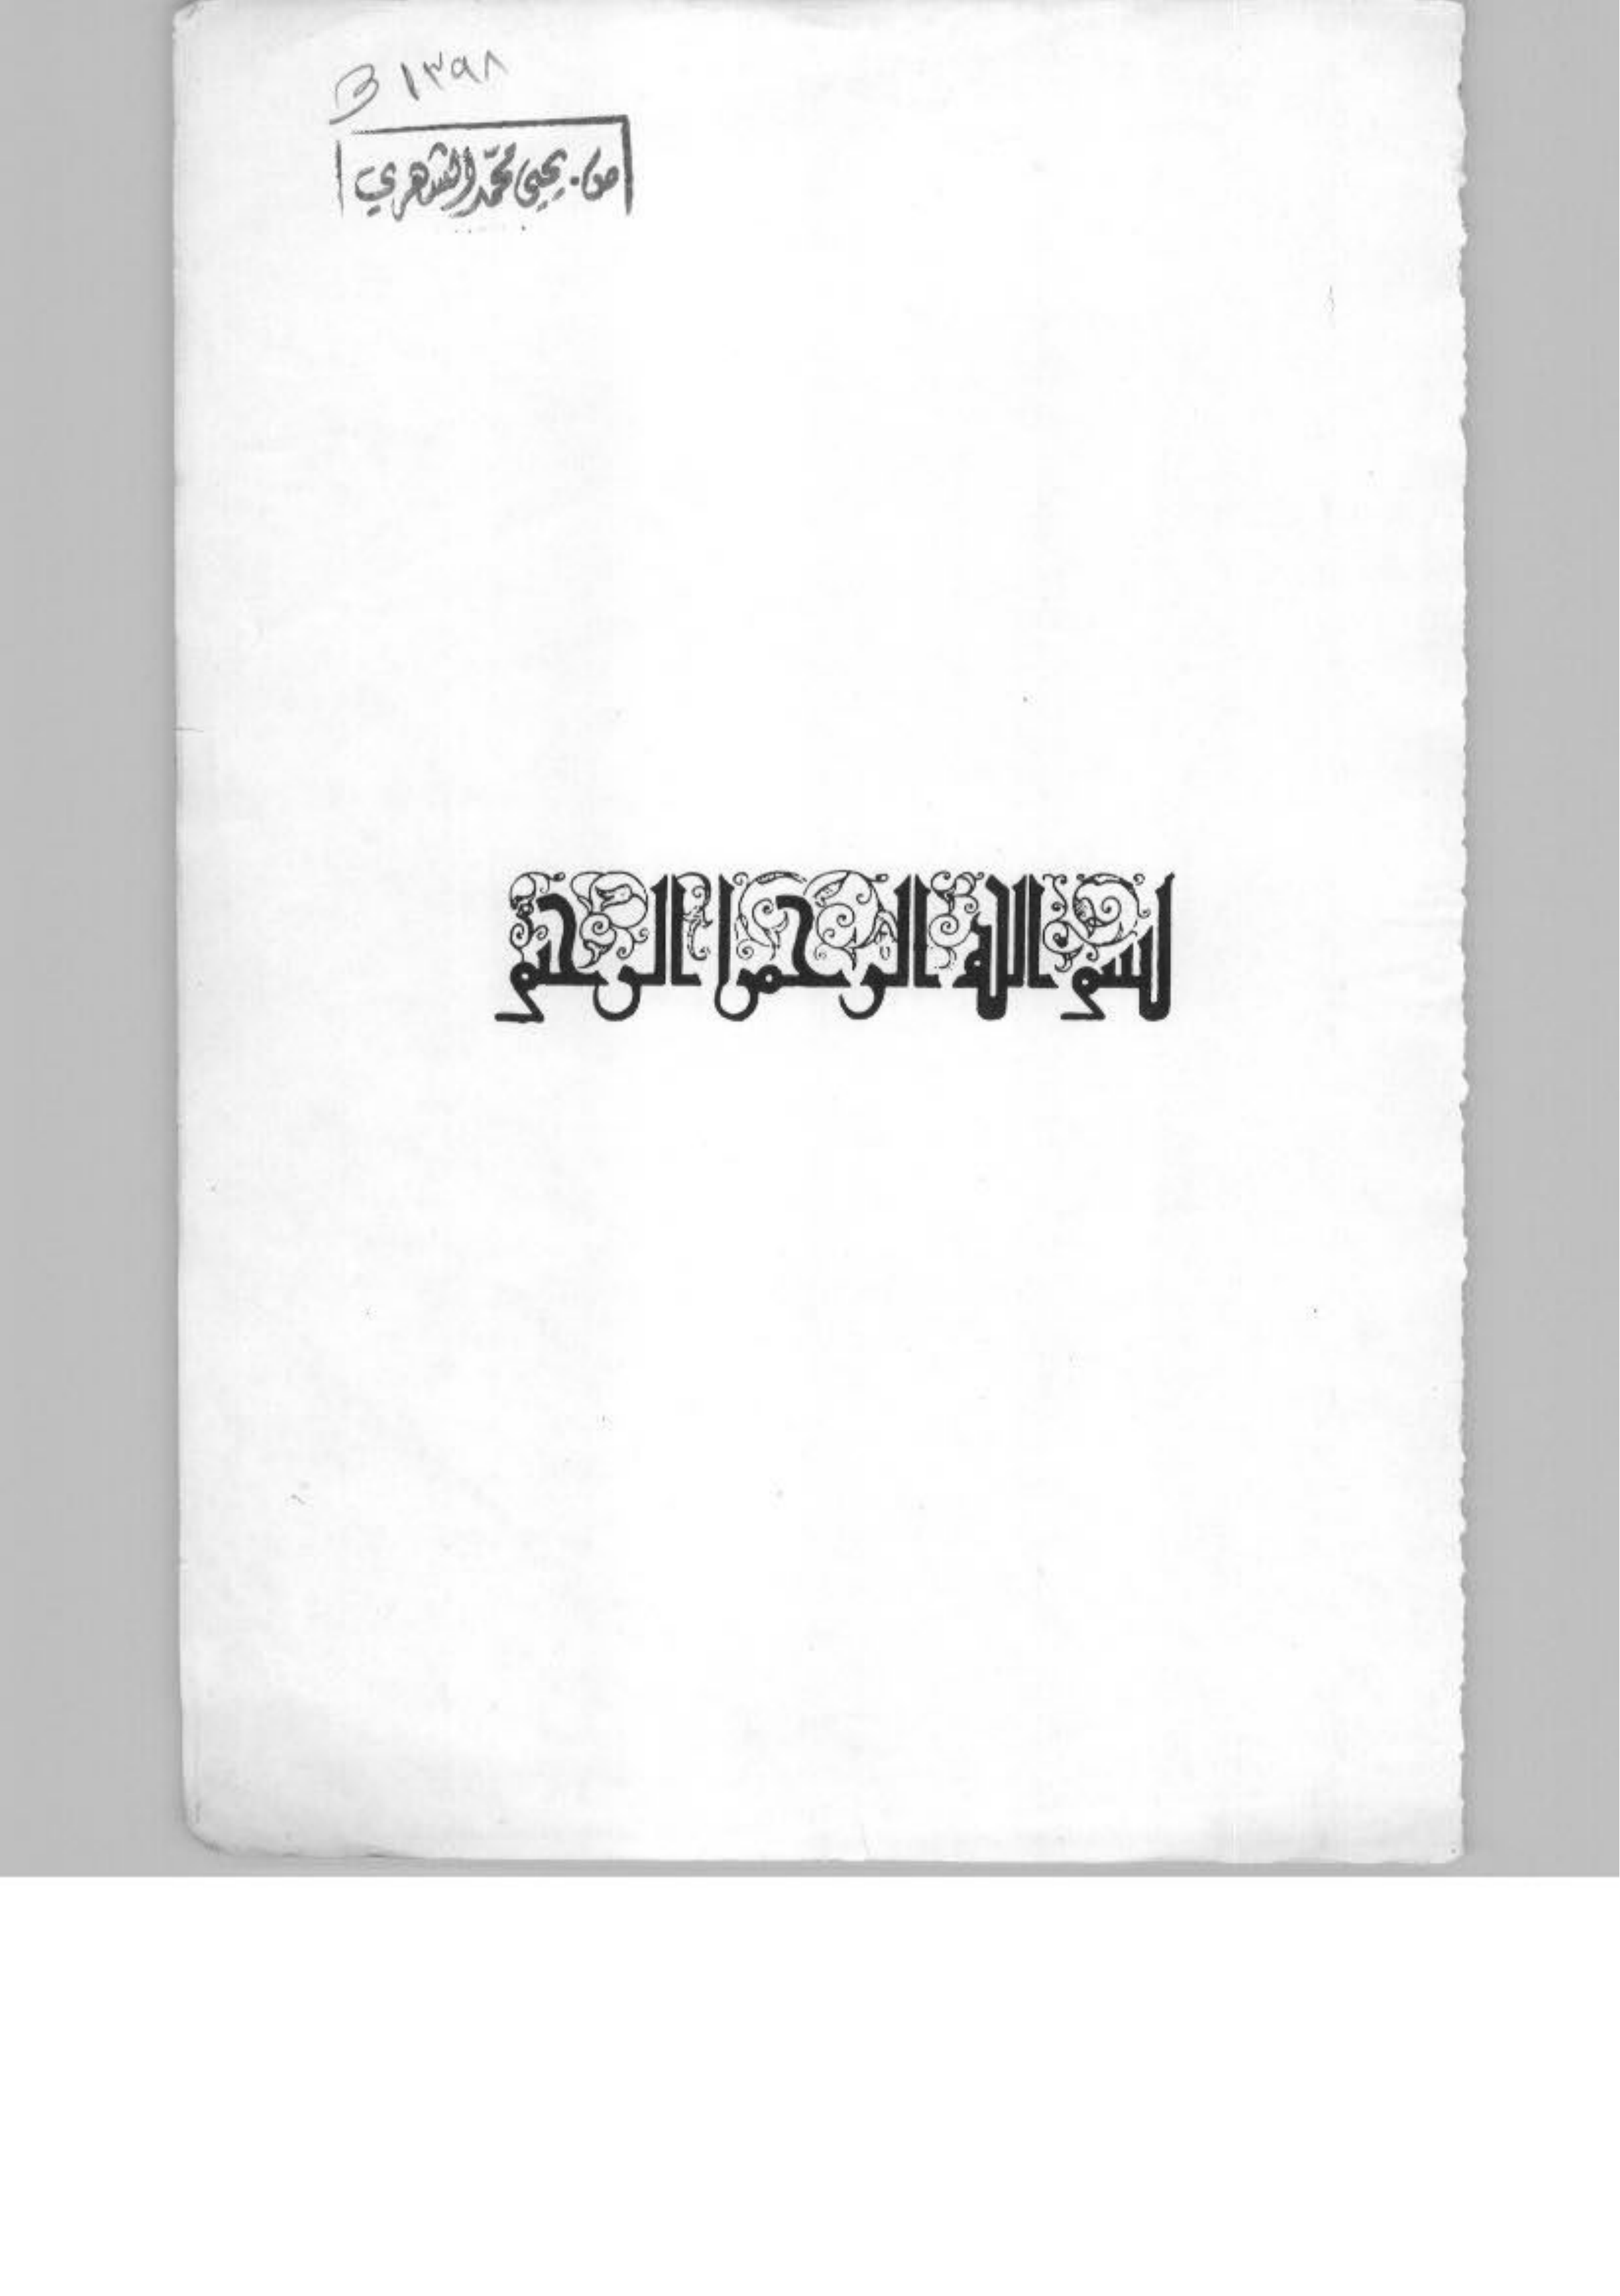 ١٣٩٨
يحيى محمد الشهري
بسم الله الرحمن الرحيم